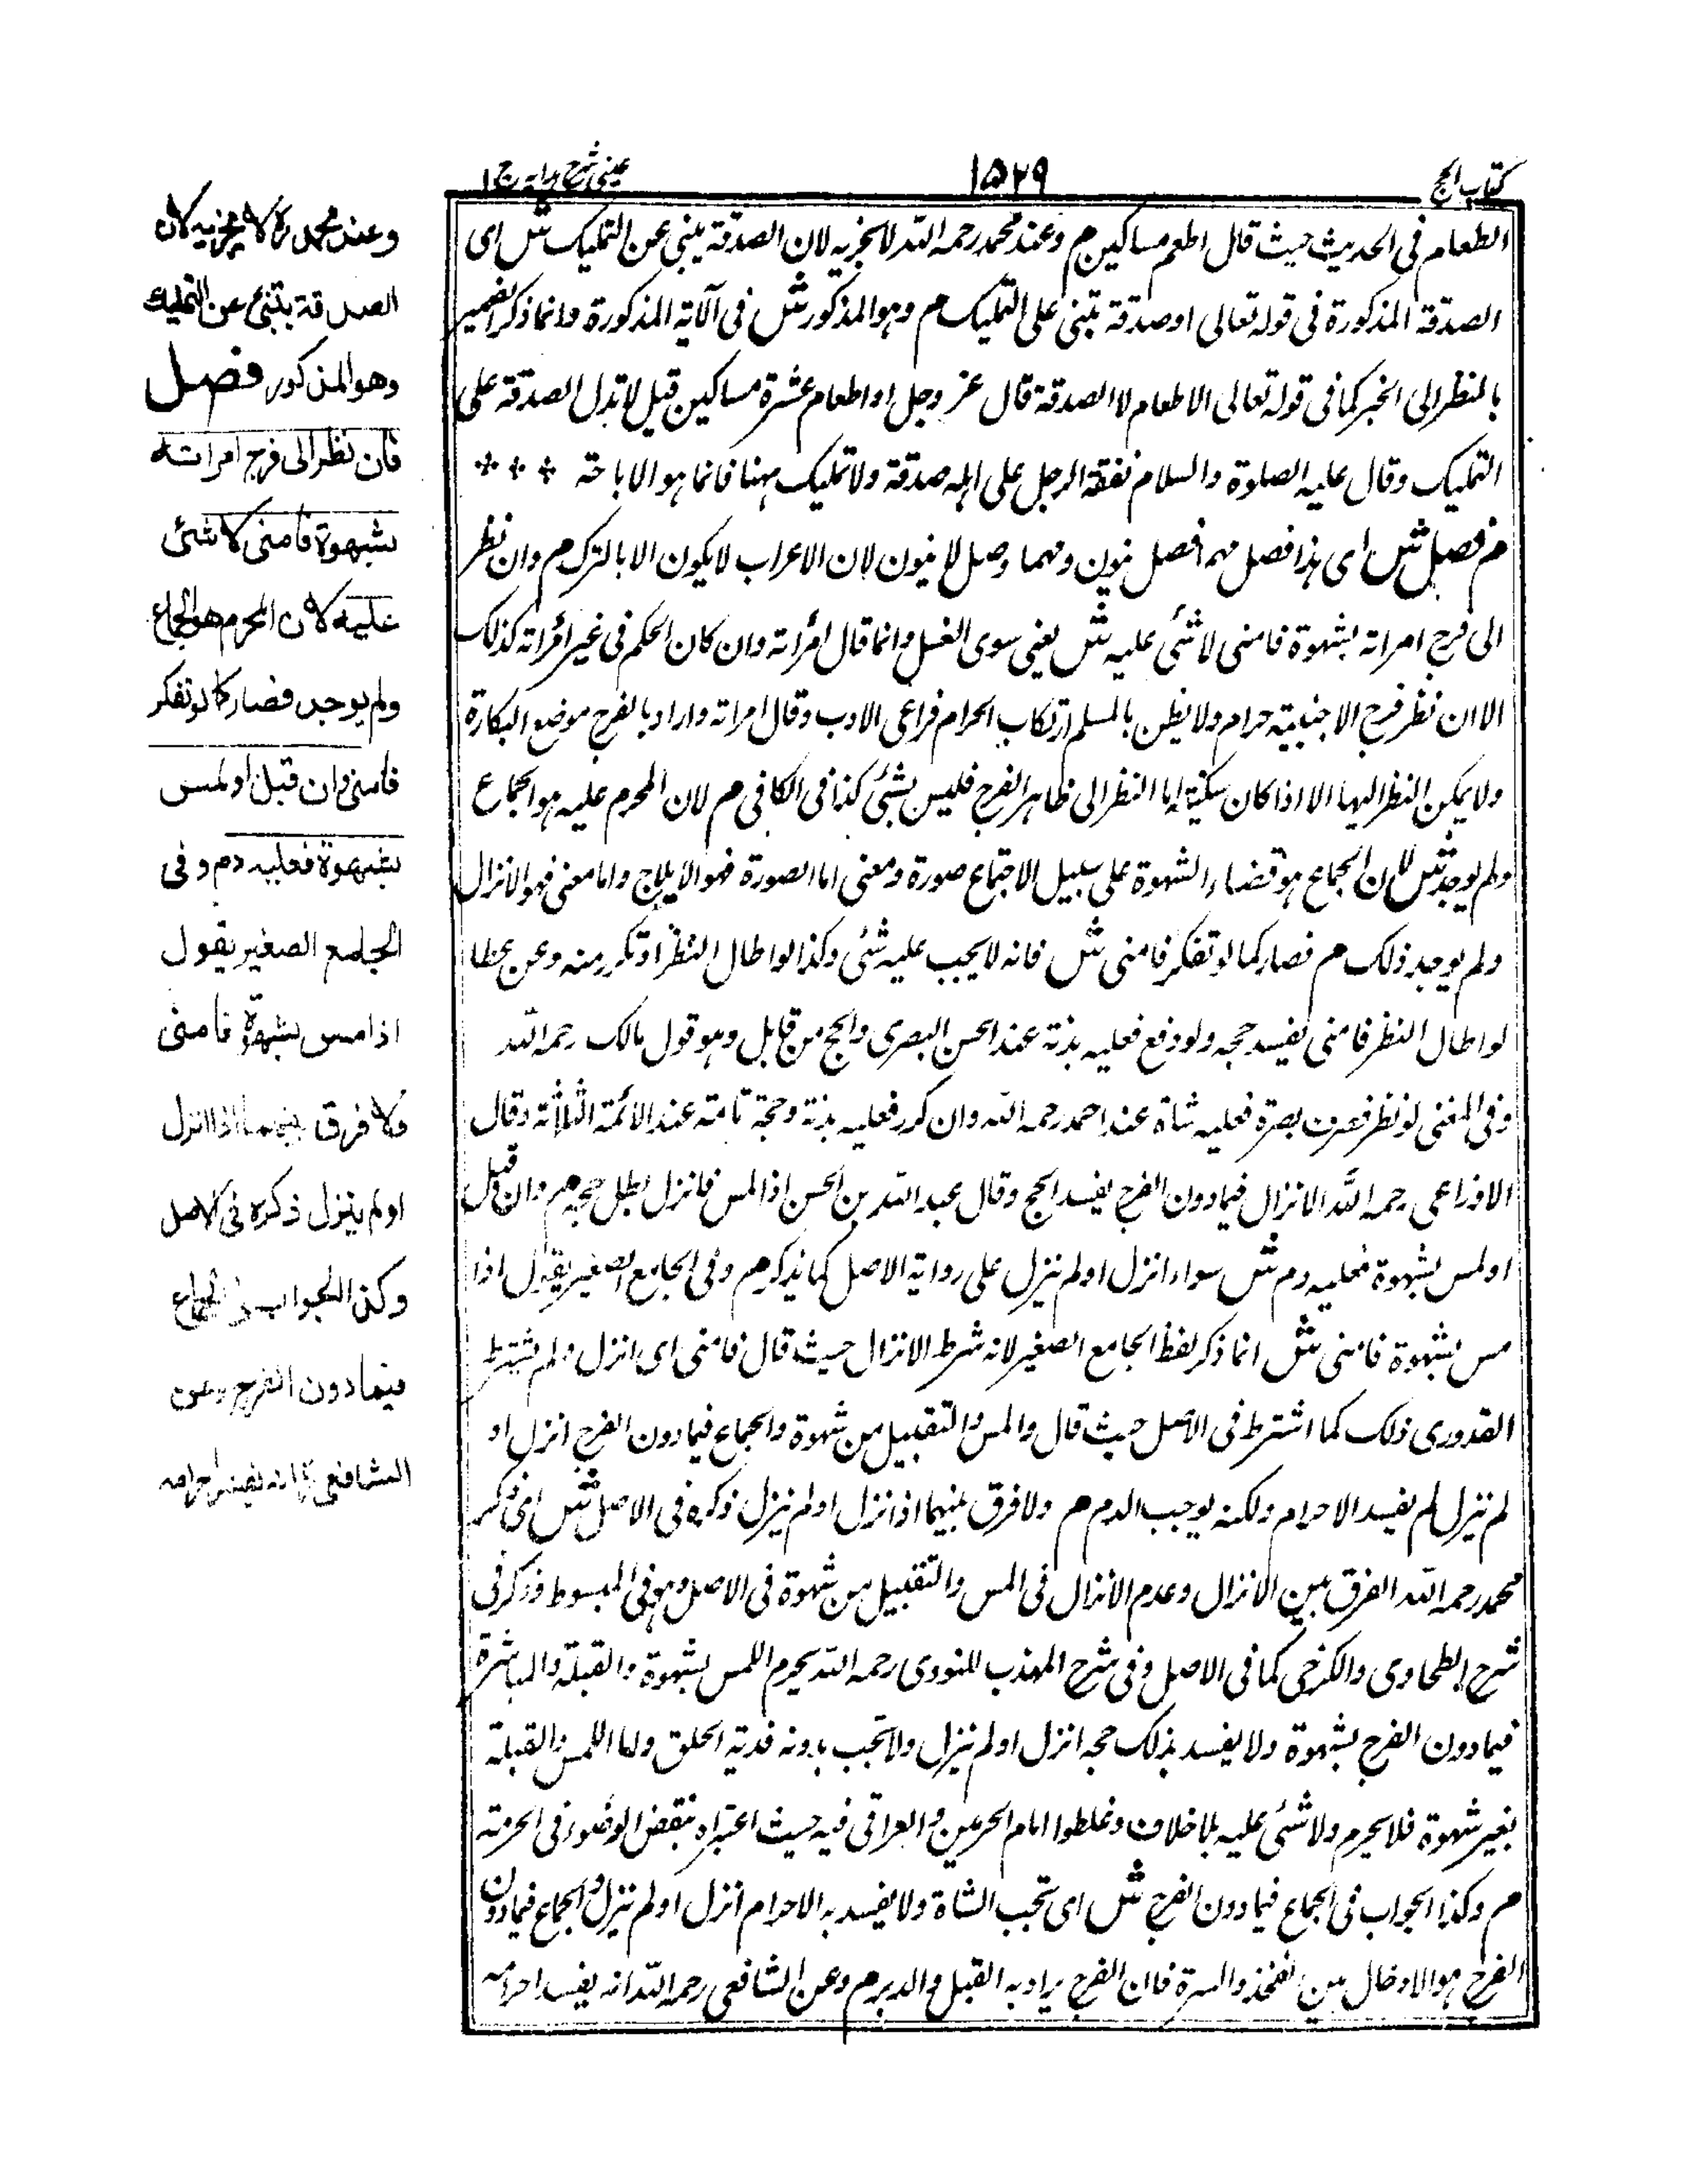 كتاب الحج
١٥٢٩
عينى شرح هدايه ج ١
الطعام فى الحديث حيث قال اطعم مساكين م وعند محمد رحمه الله لا يجزيه لان الصدقة ينبئ عن التمليك ش اى
الصدقة المذكورة فى قوله تعالى اوصدقة تنبئ على التمليك م وهو المذكور ش فى الآية المذكورة وانما ذكر الضمير
بالنظر الى الخبر كما فى قوله تعالى الاطعام لا الصدقة قال عز وجل او اطعام عشرة مساكين قيل لا تدل الصدقة على
التمليك وقال عليه الصلوة والسلام نفقة الرجل على اهله صدقة ولا تمليك ههنا فانما هو الاباحة
م فصل ش اى هذا فصل مهما فصل ينون ومهما وصل لا ينون لان الاعراب لا يكون الا بالتركم وان نظر
الى فرج امراته بشهوة فامنى لا شئ عليه ش يعنى سوى الغسل وانما قال امرأته وان كان الحكم فى غير امرأته كذلك
الا ان نظر فرج الاجنبية حرام ولا يظن بالمسلم ارتكاب الحرام فراعى الادب وقال امراته واراد بالفرج موضع البكارة
ولا يمكن النظر اليها الا اذا كان متكئة اما النظر الى ظاهر الفرج فليس بشئ كذا فى الكافى م لان المحرم عليه هو الجماع
ولم يوجد ش لان الجماع هو قضاء الشهوة على سبيل الاجتماع صورة ومعنى اما الصورة فهو الايلاج واما معنى فهو الانزال
ولم يوجد ذلك م فصار كما لو تفكر فامنى ش فانه لا يجب عليه شئ وكذا لو اطال النظر او تكرر منه وعن عطا
لو اطال النظر فامنى يفسد حجه ولو دفع فعليه بدنة عند الحسن البصرى والحج من قابل وهو قول مالك رحمه الله
وفى المغنى لو نظر فصرف بصره فعليه شاة عند احمد رحمه الله وان كرر فعليه بدنة وحجة تامة عند الائمة الثلاثة وقال
الاوزاعى رحمه الله الانزال فيما دون الفرج يفسد الحج وقال عبد الله بن الحسن اذا لمس فانزل بطل حجه م وان قبل
او لمس بشهوة فعليه دم ش سواء انزل او لم ينزل على رواية الاصل كما يذكر م وفى الجامع الصغير يقول اذا
مس بشهوة فامنى ش انما ذكر لفظ الجامع الصغير لانه شرط الانزال حيث قال فامنى اى انزل ولم يشترط
القدورى ذلك كما اشترط فى الاصل حيث قال والمس والتقبيل من شهوة والجماع فيما دون الفرج انزل او
لم ينزل لم يفسد الاحرام ولكنه يوجب الدم م ولا فرق بينهما اذا انزل او لم ينزل ذكره فى الاصل ش اى ذكر
محمد رحمه الله الفرق بين الانزال وعدم الانزال فى المس والتقبيل من شهوة فى الاصل وهو فى المبسوط وذكر فى
شرح الطحاوى والكرخى كما فى الاصل وفى شرح المهذب للنووى رحمه الله يحرم اللمس بشهوة والقبلة والمباشرة
فيما دون الفرج بشهوة ولا يفسد بذلك حجه انزل او لم ينزل ولا تجب بدونه فدية الحلق واما اللمس والقبلة
بغير شهوة فلا يحرم ولا شئ عليه بلا خلاف وغلطوا امام الحرمين والعراقى فيه حيث اعتبراه بنقض الوضوء فى الحرمة
م وكذا الجواب فى الجماع فيما دون الفرج ش اى تجب الشاة ولا يفسد به الاحرام انزل او لم ينزل والجماع فيما دون
الفرج هو الادخال بين الفخذ والسرة فان الفرج يراد به القبل والدبر م وعن الشافعى رحمه الله انه يفسد احرامه
وعند محمد رح لا يجزيه لان
الصدقة ينبئ عن التمليك
وهو المذكور فصل
فان نظر الى فرج امراته
بشهوة فامنى لا شئ
عليه لان المحرم هو الجماع
ولم يوجد فصار كما لو تفكر
فامنى وان قبل او لمس
بشهوة فعليه دم وفى
الجامع الصغير يقول
اذا مس بشهوة فامنى
ولا فرق بينهما اذا انزل
او لم ينزل ذكره فى الاصل
وكذا الجواب فى الجماع
فيما دون الفرج وعن
الشافعى انه يفسد احرامه